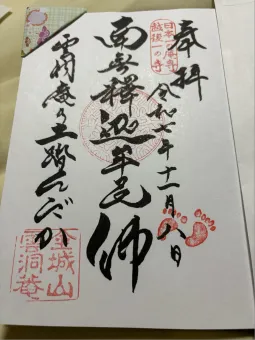 奉拝
日本一庵寺
越後一の寺
令和七年十一月八日
南無釋迦牟尼佛
雲洞庵の土踏んだか
金城山
雲洞菴